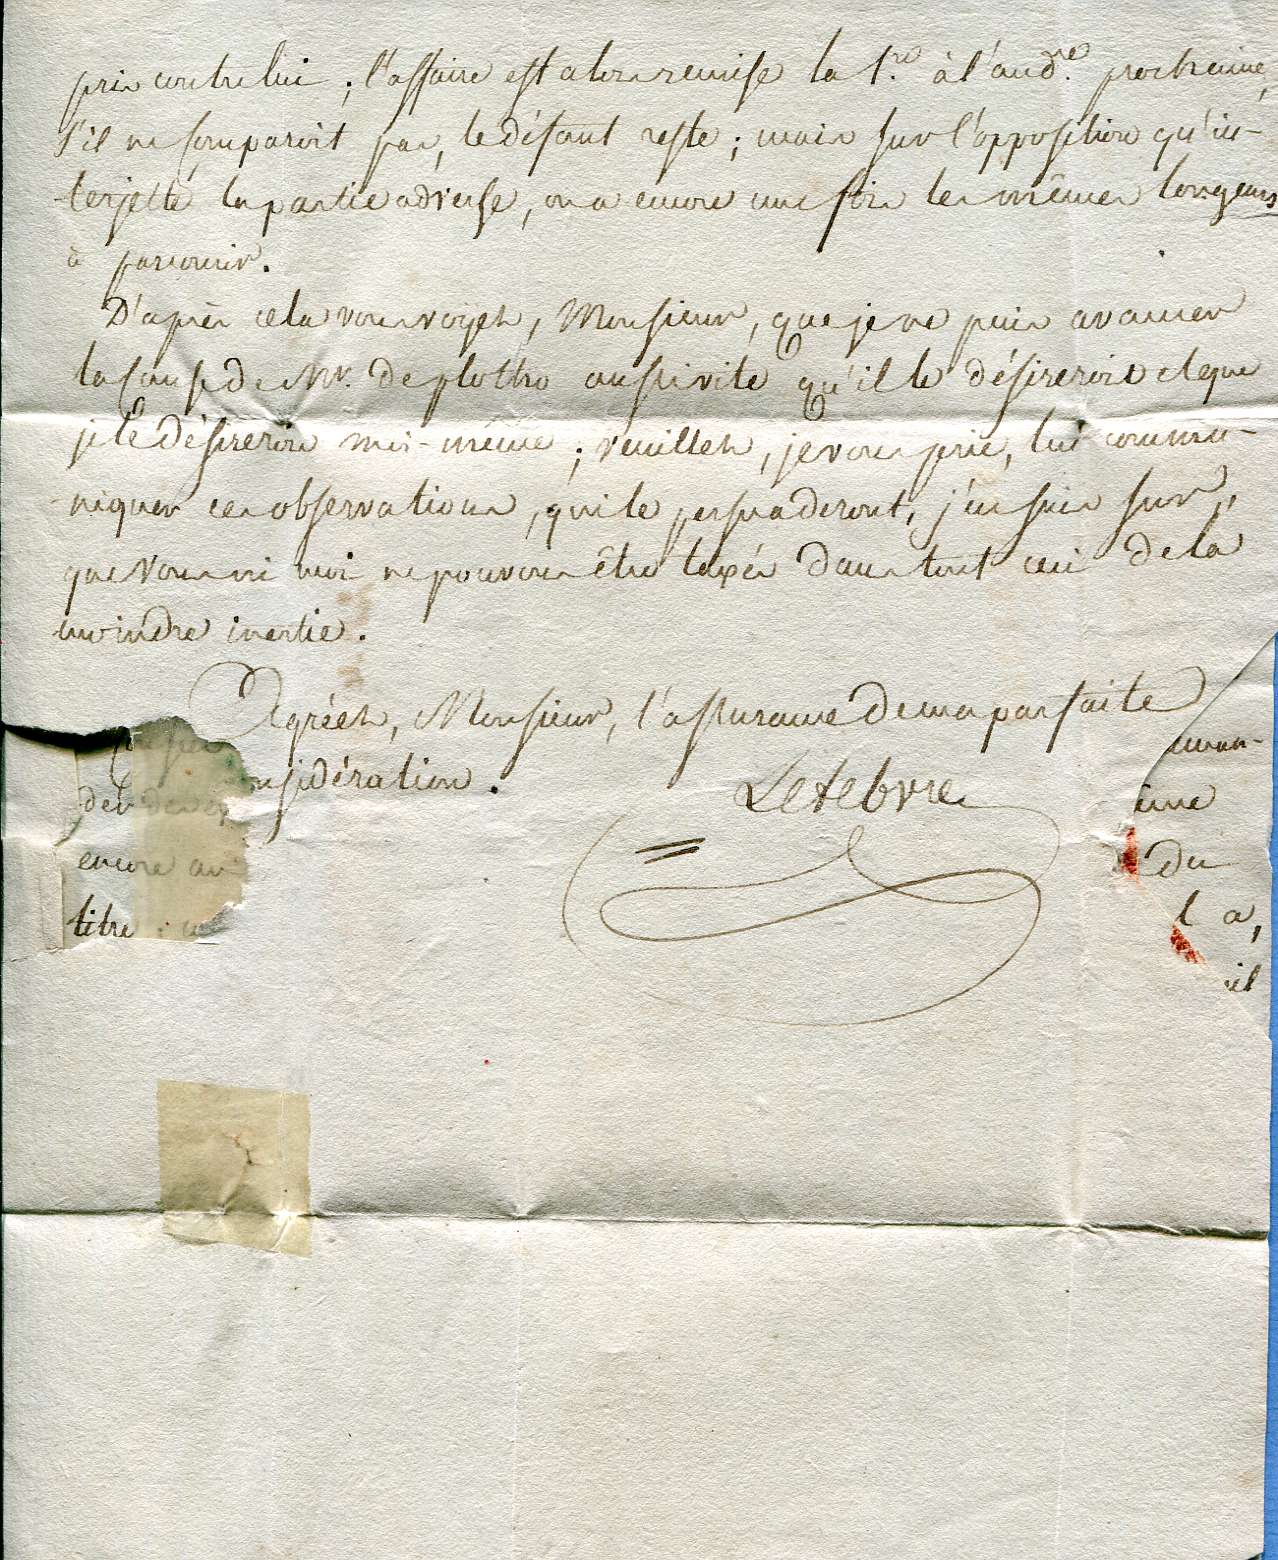 pris contre lui ; l'affaire est alors remise la 1.re à l'aud.ce prochaine,
s'il ne comparoit pas, le défaut reste ; mais sur l'opposition qu'in-
-terjette la partie adverse, on a encore une fois les mêmes longeurs
à parcourir.
D'après cela vous voyez, Monsieur, que je ne puis avancer
la cause de Mr. de plotho aussi vite qu'il le désireroit et que
je le désirerois moi-même ; veuillez, je vous prie, lui commu-
niquer ces observations, qui le persuaderont, j'en suis sur,
que vous ni moi ne pouvons être taxés dans tout ceci de la
moindre inertie.
Agréez, Monsieur, l'assurance de ma parfaite
considération.
Lefebvre
der
encore
titre
une
du
a,
il